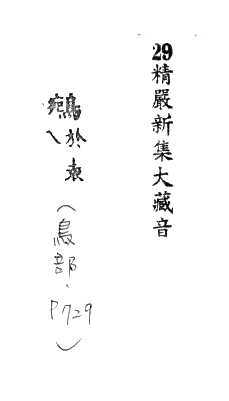 29精嚴新集大藏音
鵷於袁
(鳥部、P729)